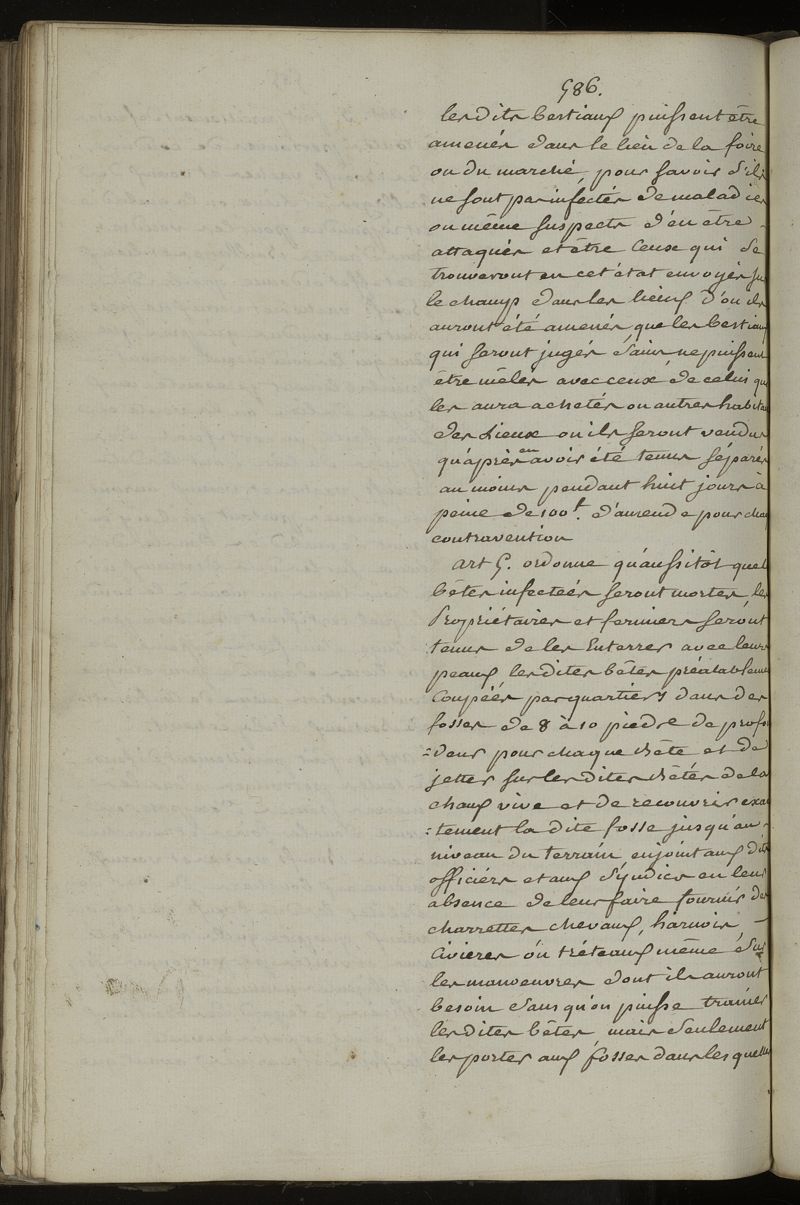 586.
les dits bestiaux puissent être
amenés dans le lieu de la foire
ou du marché, pour savoir s'ils
ne sont pas infectés de maladies
ou même suspects d'en être
attaqués et être ceux qui se
trouveront en cet état envoyés sur
le champ dans les lieux d'où ils
auront été amenés que les bestiaux
qui seront jugés sains ne puissent
être mêlés avec ceux de celui qui
les aura achetés ou autres habita
des Lieux où ils seront vendus
qu'après en avoir été tenus séparés
au moins pendant huit jours à
peine de 100 l. d'amende pour cha
contravention
art 5. ordonne qu'aussitôt que l
bêtes infectées seront mortes, les
Propriétaires et fermiers seront
tenus de les Enterrer avec leurs
peaux les dites bêtes préalableme
Coupées par quartiers dans des
fosses de 8 à 10 pieds de profo
=deur pour chaque bête et de
jetter sur les dites bêtes de la
chaux vive et de recouvrir exa
=tement la dite fosse jusqu'au
niveau du terrain, enjoint aux dits
officiers et aux Syndics en leur
absence de leur faire fournir des
charrettes chevaux, harnois,
Civieres ou tréteaux même
les manoeuvres dont ils auront
besoin sans qu'on puisse traîner
les dites bêtes mais seulement
les porter aux fosses dans les quelles